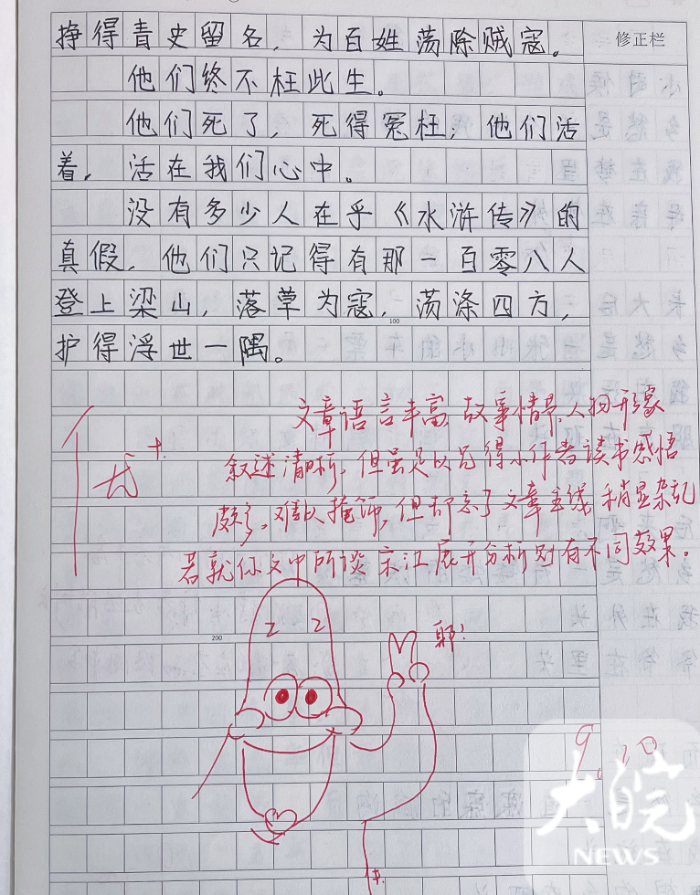 挣得青史留名，为百姓荡除贼寇。
修正栏
他们终不枉此生。
他们死了，死得冤枉；他们活
着，活在我们心中。
没有多少人在乎《水浒传》的
真假，他们只记得有那一百零八人
登上梁山，落草为寇，荡涤四方，
100
护得浮世一隅。
文章语言丰富,故事情景,人物形象
叙述清晰,但虽足以见得小作者读书感悟
颇多,难以掩饰,但却忘了文章主线,稍显杂乱
若就你文中所谈宋江展开分析则有不同效果。
200
耶!
9.10
大皖
NEWS